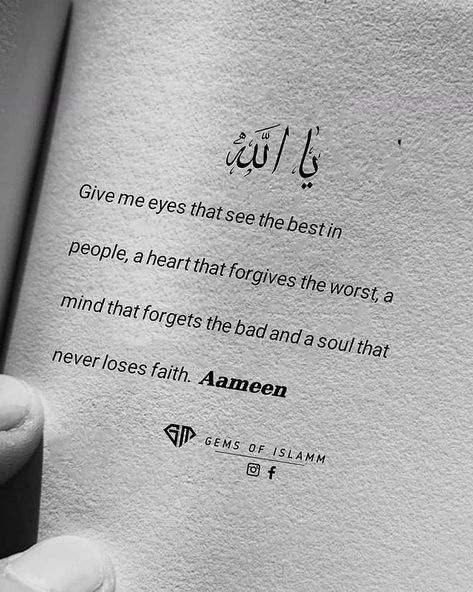 يا الله
Give me eyes that see the best in
people, a heart that forgives the worst, a
mind that forgets the bad and a soul that
never loses faith. Aameen
GM
GEMS OF ISLAMM